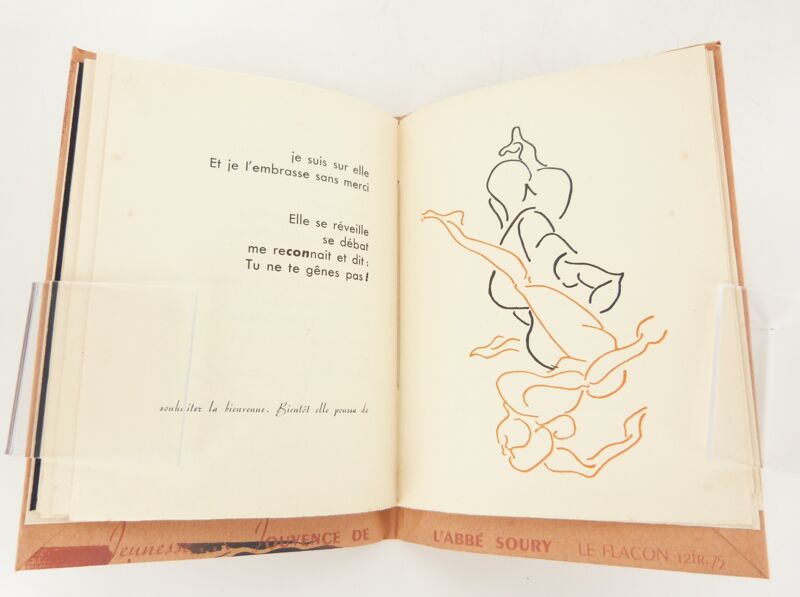 je suis sur elle
Et je l'embrasse sans merci
Elle se réveille
se débat
me reconnait et dit:
Tu ne te gênes pas!
souhaitez la bienvenue. Bientôt elle poussa de
Jeunesse JOUVENCE DE L'ABBÉ SOURY LE FLACON 12fr.75